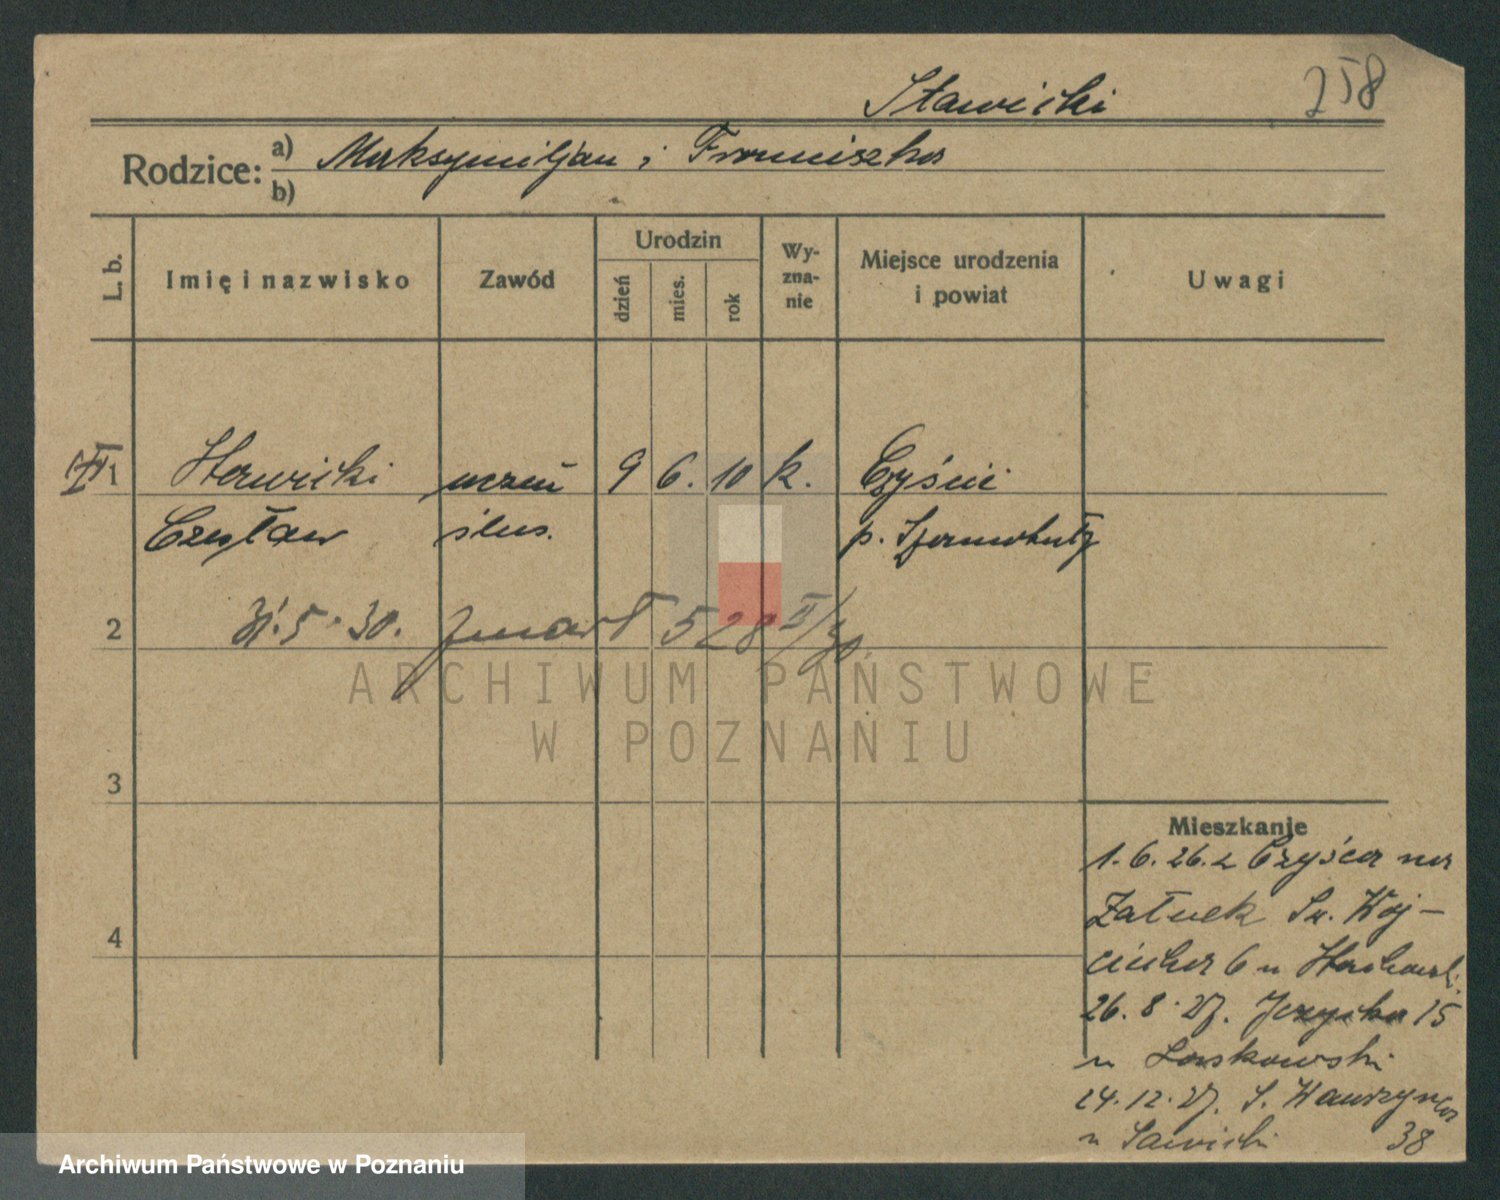 Sławicki
258
Rodzice: a) Maksymiljan i Franciszka
b)
L. b.
Imię i nazwisko
Zawód
Urodzin
dzień
mies.
rok
Wy-
zna-
nie
Miejsce urodzenia
i powiat
Uwagi
Sławicki uczeń 9 6. 10 k. Czyście
Czesław ślus. p. Szamotuły
2
31.5.30. zmarł 528 II/30
3
4
Mieszkanie
1.6.26. z Czyścia na
Zaułek Św. Woj-
ciecha 6 u
26.8.27. Jeżycka 15
u Laskowski
24.12.27. Ś. Wawrzyńca
u Sawicki 38
ARCHIWUM PAŃSTWOWE
W POZNANIU
Archiwum Państwowe w Poznaniu